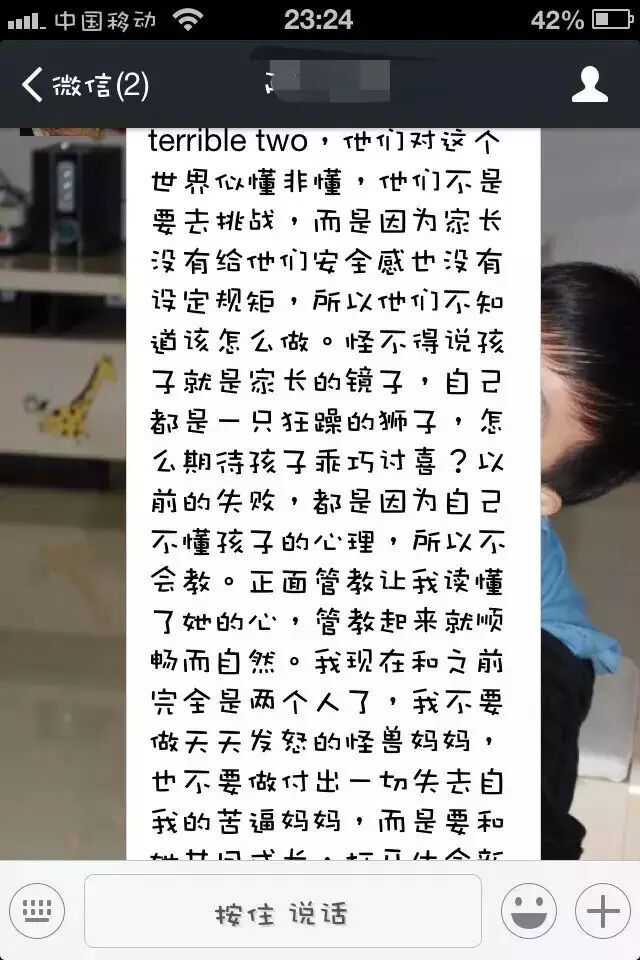 中国移动 23:24 42%
微信(2)
terrible two，他们对这个
世界似懂非懂，他们不是
要去挑战，而是因为家长
没有给他们安全感也没有
设定规矩，所以他们不知
道该怎么做。怪不得说孩
子就是家长的镜子，自己
都是一只狂躁的狮子，怎
么期待孩子乖巧讨喜？以
前的失败，都是因为自己
不懂孩子的心理，所以不
会教。正面管教让我读懂
了她的心，管教起来就顺
畅而自然。我现在和之前
完全是两个人了，我不要
做天天发怒的怪兽妈妈，
也不要做付出一切失去自
我的苦逼妈妈，而是要和
按住 说话